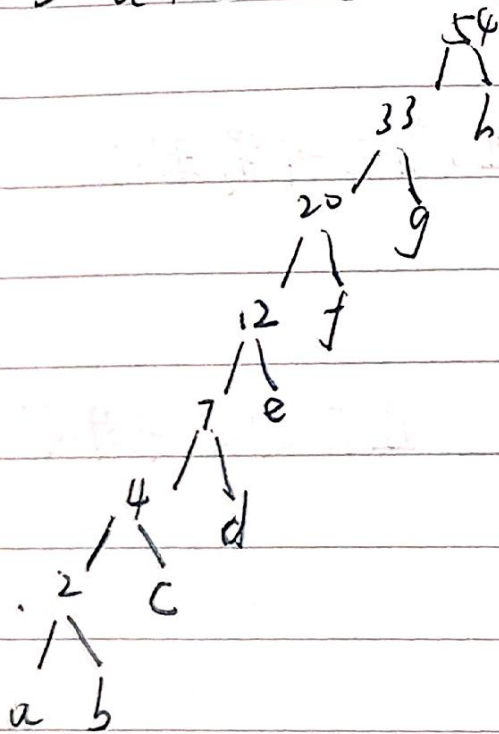 54
33 h
20 g
12 f
7 e
4 d
2 c
a b